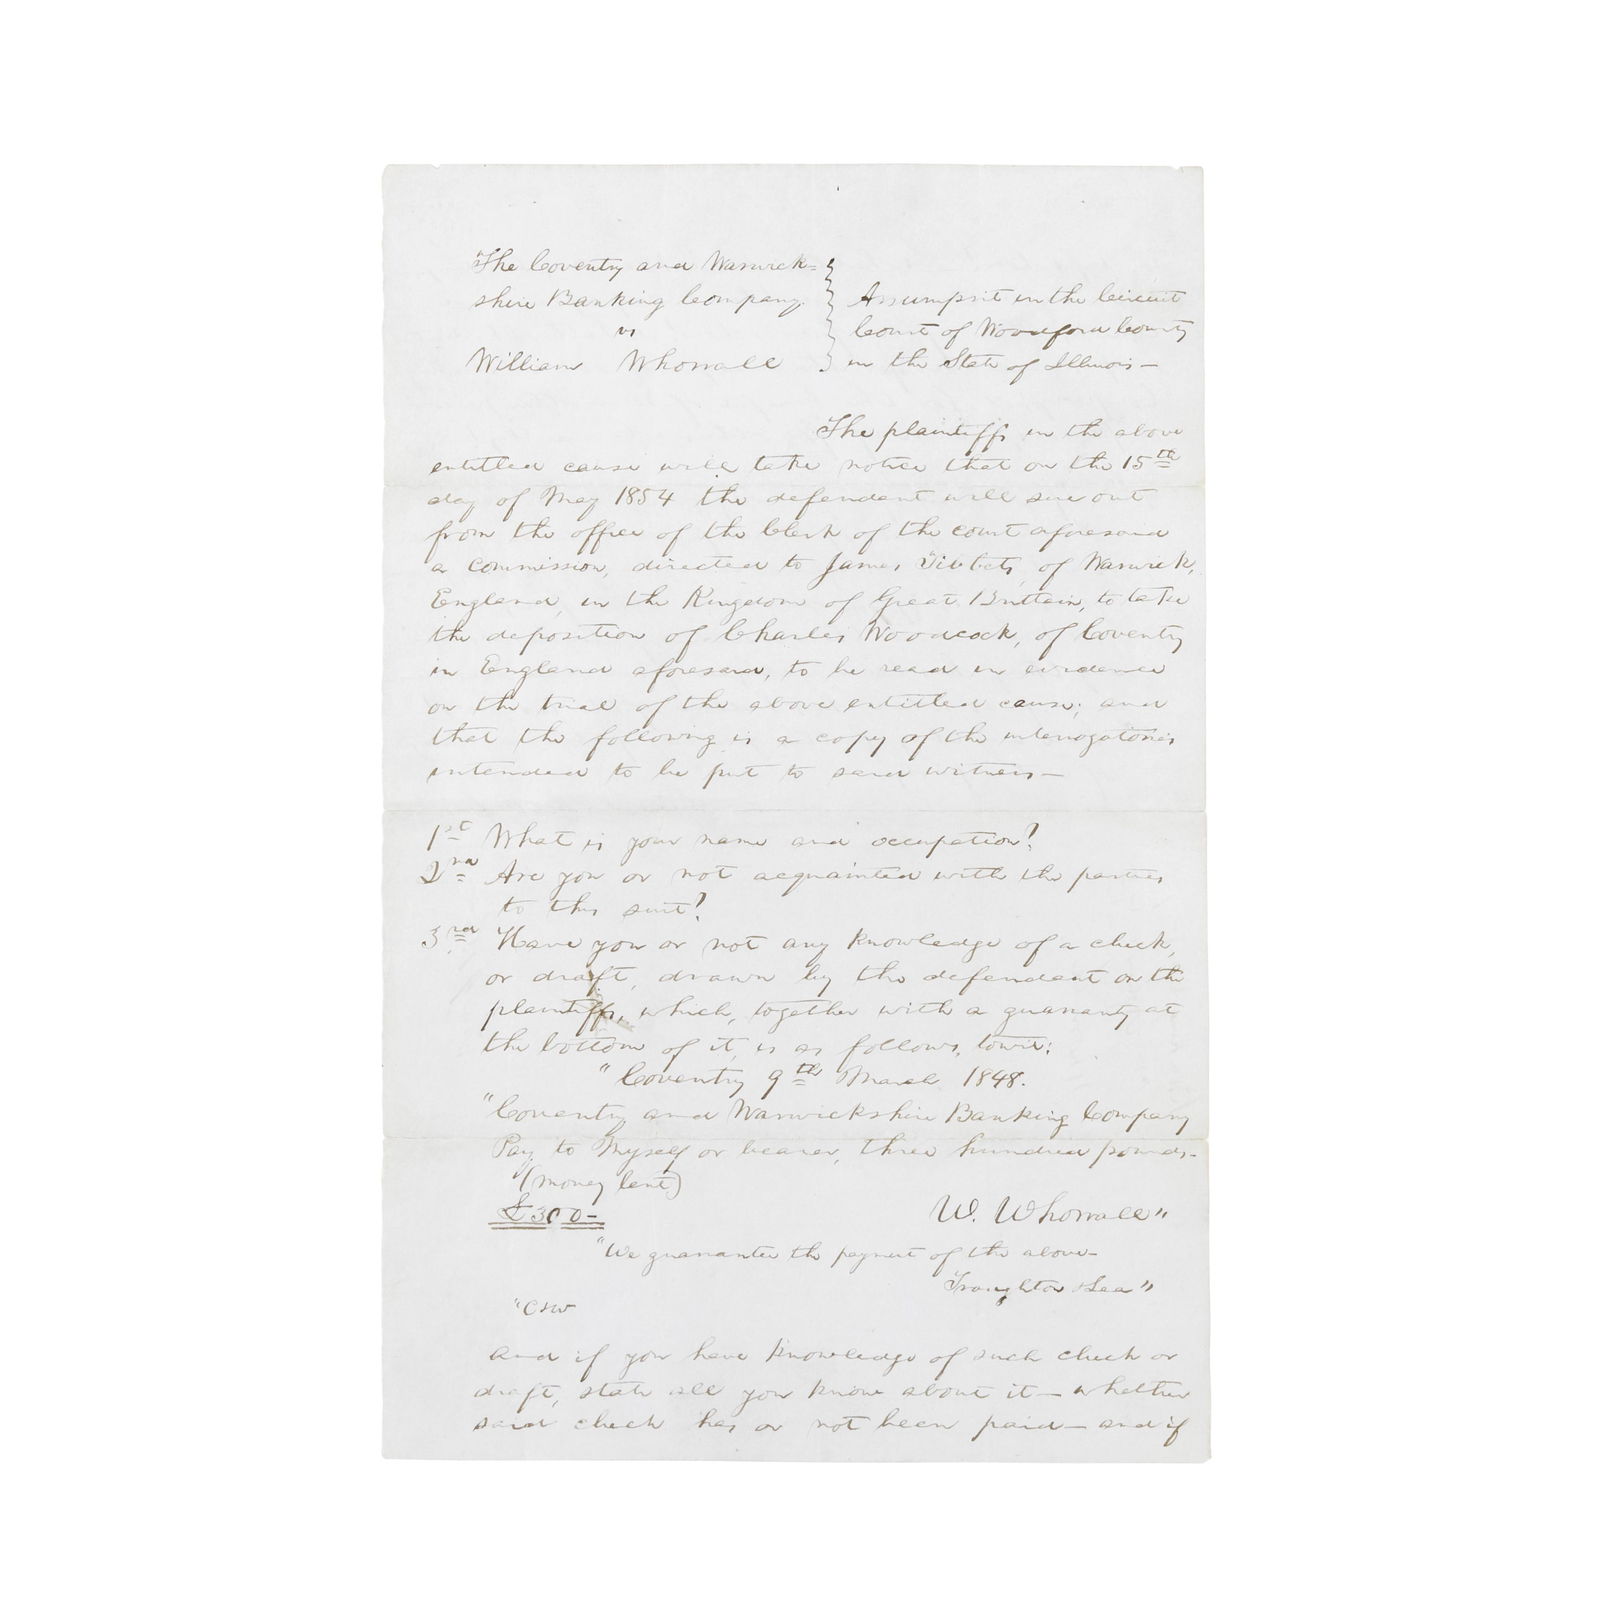 "The Coventry and Warwick=
shire Banking Company.
vs
William Whorrall
Assumpsit in the Circuit
Court of Woodford County
in the State of Illinois—
The plaintiffs in the above
entitled cause will take notice that on the 15th
day of May 1854 the defendant will sue out
from the office of the Clerk of the court aforesaid
a commission, directed to James Tibbets, of Warwick,
England, in the Kingdom of Great Brittain, to take
the deposition of Charles Woodcock, of Coventry
in England aforesaid, to be read in evidence
on the trial of the above entitled cause; and
that the following is a copy of the interrogatories
intended to be put to said witness—
1st What is your name and occupation?
2nd Are you or not acquainted with the parties
to this suit?
3rd Have you or not any knowledge of a check,
or draft, drawn by the defendant on the
plaintiffs, which, together with a guaranty at
the bottom of it, is as follows, towit:
"Coventry 9th March 1848.
"Coventry and Warwickshire Banking Company
Pay to Myself or bearer, three hundred pounds—
(money lent)
£300— W. Whorrall"
"We guarantee the payment of the above—
Troughton & Lea"
"CHW
and if you have knowledge of such check or
draft, state all you know about it— whether
said check has or not been paid— and if